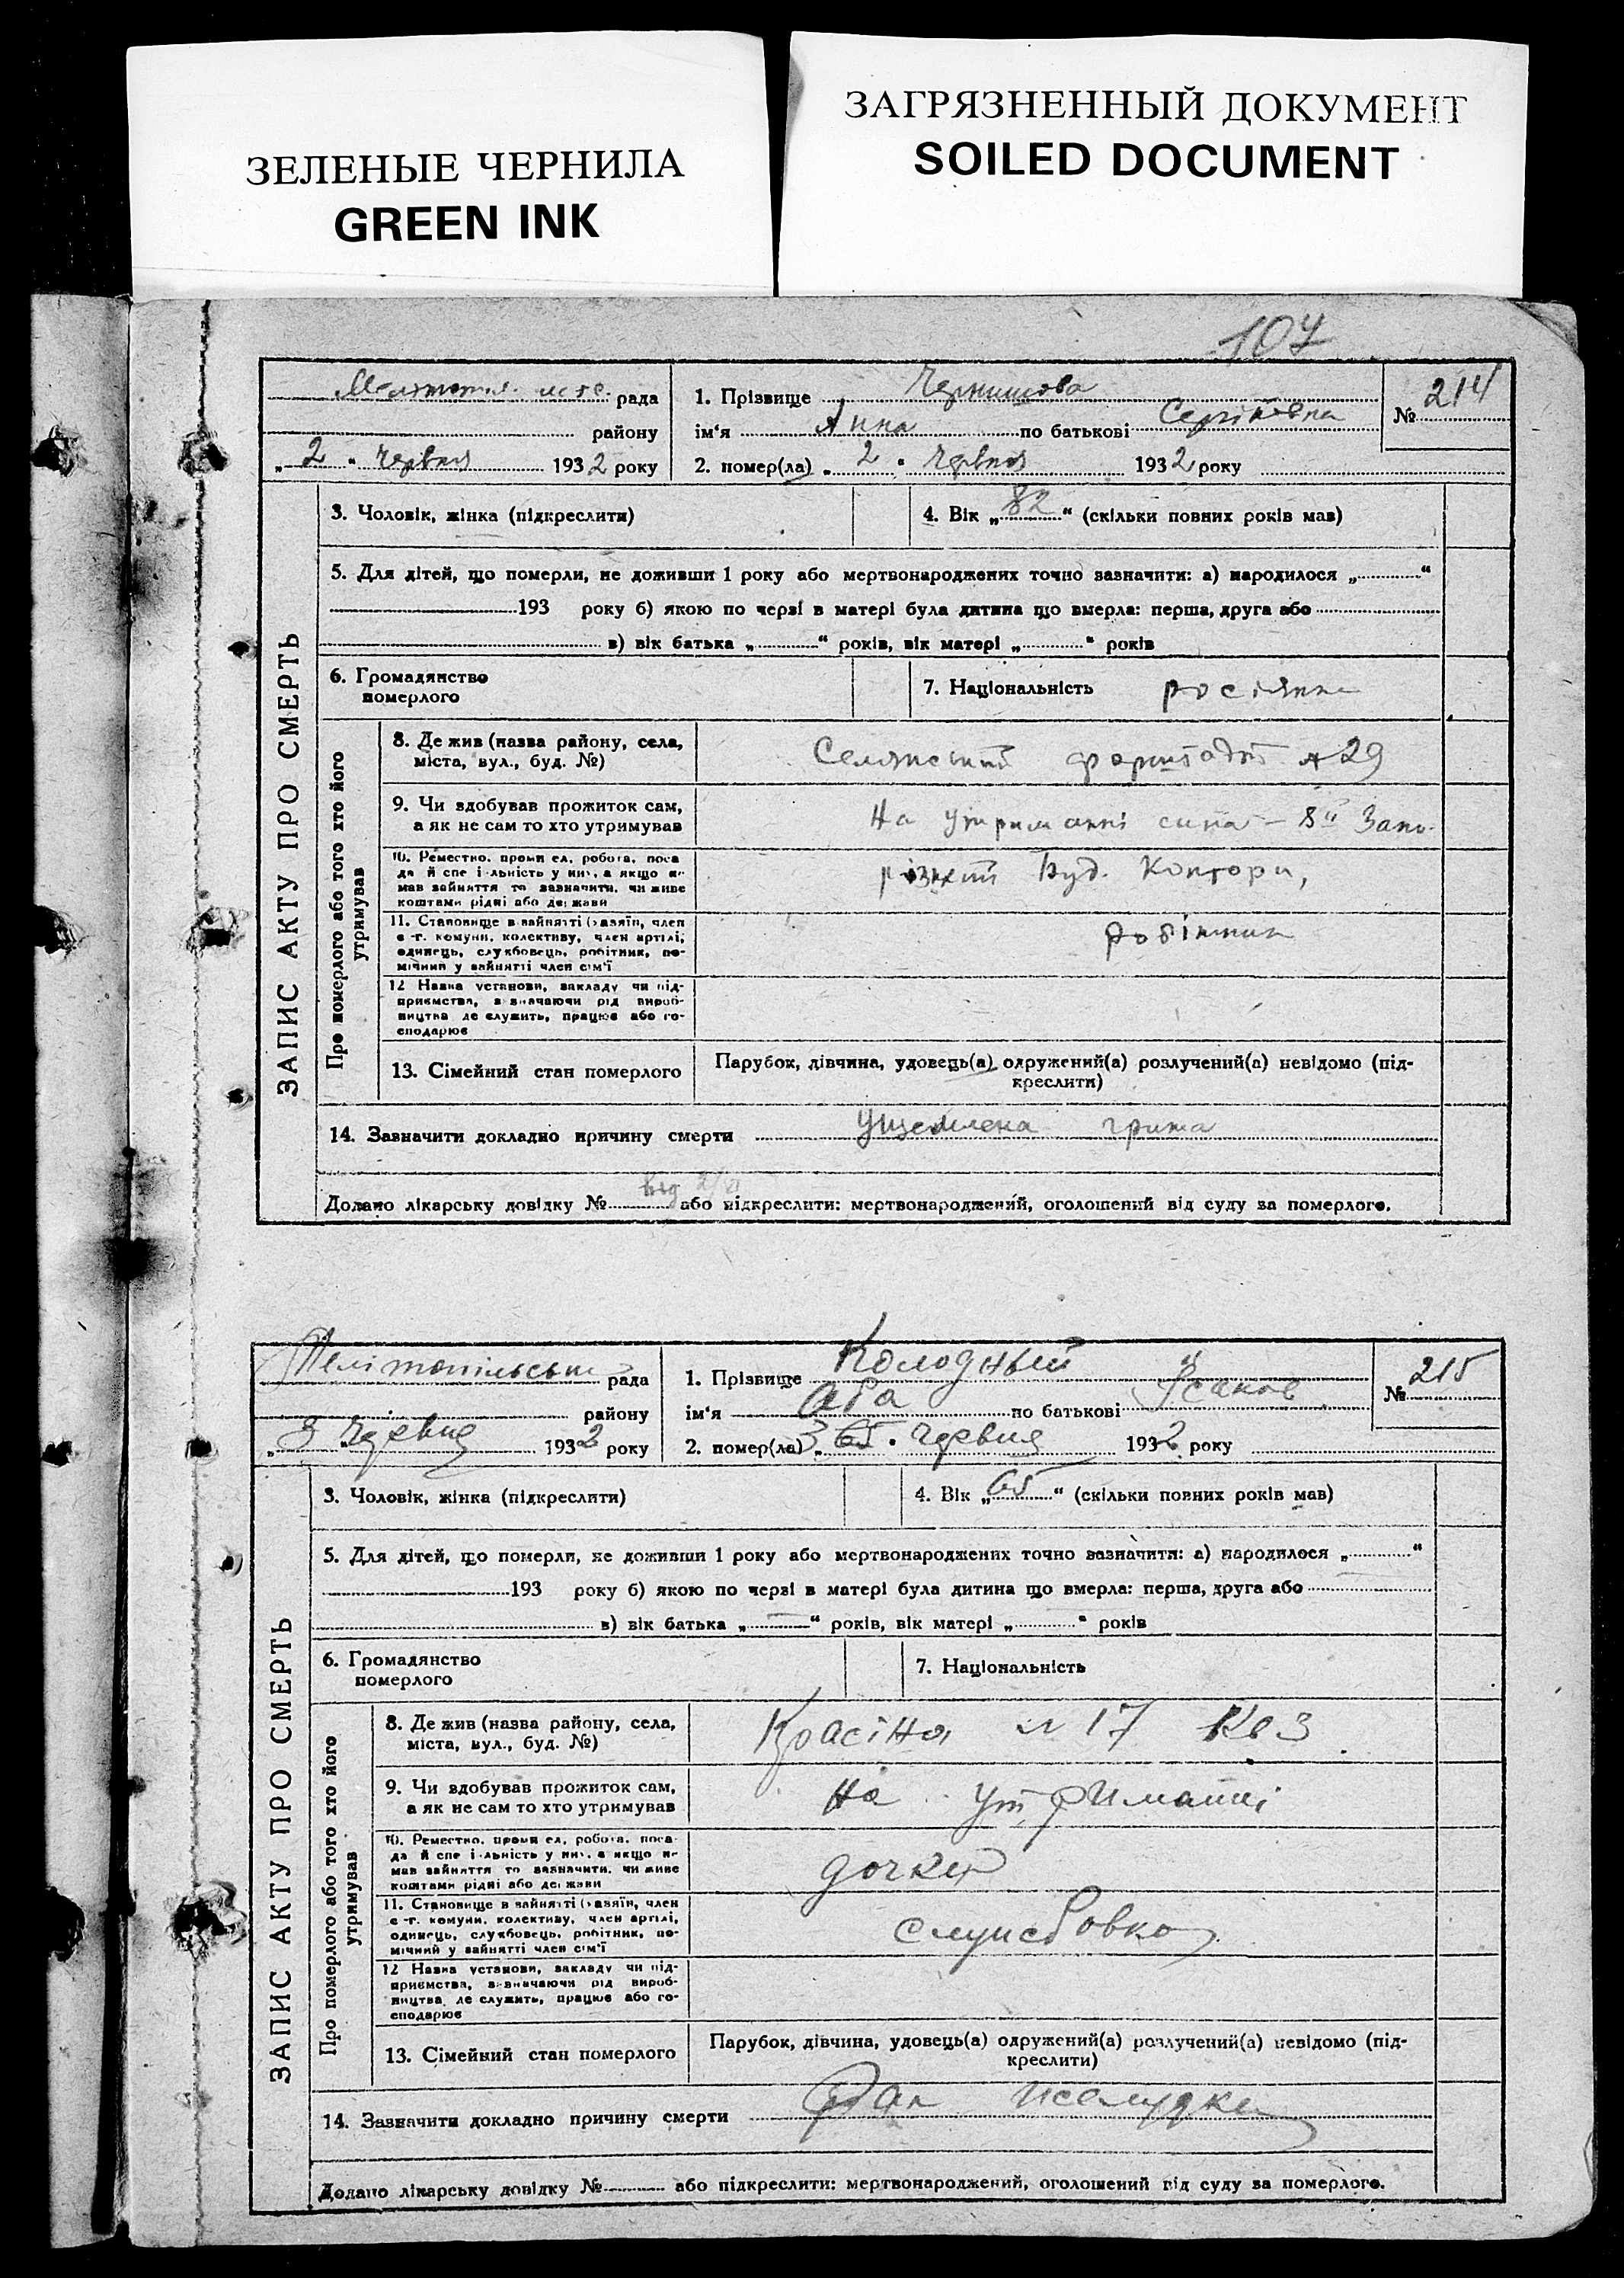 ЗЕЛЕНЫЕ ЧЕРНИЛА
GREEN INK
ЗАГРЯЗНЕННЫЙ ДОКУМЕНТ
SOILED DOCUMENT
107
рада
району
„ 2 " червня 1932 року
1. Прізвище Чернишова
ім'я Анна по батькові
2. помер(ла) „ 2 " червня 1932 року
№ 214
ЗАПИС АКТУ ПРО СМЕРТЬ
3. Чоловік, жінка (підкреслити)
4. Вік „ 82 “ (скільки повних років мав)
5. Для дітей, що померли, не доживши 1 року або мертвонароджених точно зазначити: а) народилося „ “
193 року б) якою по черзі в матері була дитина що вмерла: перша, друга або
в) вік батька „ “ років, вік матері „ “ років
6. Громадянство
померлого
7. Національність росіянка
Про померлого або того хто його
утримував
8. Де жив (назва району, села,
міста, вул., буд. №)
Селянський форштадт № 29
9. Чи здобував прожиток сам,
а як не сам то хто утримував
На утриманні сина – 8ії Запо-
10. Реместно, промисел, робота, поса
да й спеціальність у них, а якщо не
мав зайняття то зазначити, чи живе
коштами рідні або держави
різької Буд. Контори,
11. Становище в зайнятті (хазяїн, член
с-г. комуни, колективу, член артілі,
одинець, службовець, робітник, по-
мічний у зайнятті член сім'ї
робітник
12 Назва установи, закладу чи під-
приємства, зазначаючи рід вироб-
ництва де служить, працює або го-
сподарює
13. Сімейний стан померлого
Парубок, дівчина, удовець(а) одружений(а) розлучений(а) невідомо (під-
креслити)
14. Зазначити докладно причину смерти Ущемлена грижа
Додано лікарську довідку № від 2/VI або підкреслити: мертвонароджений, оголошений від суду за померлого.
Мелітопільськ рада
району
„ 3 червня 1932 року
1. Прізвище Колодный
ім'я Аба по батькові Ісаков
2. помер(ла) 3 „ 65 " червня 1932 року
№ 215
ЗАПИС АКТУ ПРО СМЕРТЬ
3. Чоловік, жінка (підкреслити)
4. Вік „ 65 “ (скільки повних років мав)
5. Для дітей, що померли, не доживши 1 року або мертвонароджених точно зазначити: а) народилося „ “
193 року б) якою по черзі в матері була дитина що вмерла: перша, друга або
в) вік батька „ “ років, вік матері „ “ років
6. Громадянство
померлого
7. Національність
Про померлого або того хто його
утримував
8. Де жив (назва району, села,
міста, вул., буд. №)
Красіна № 17 Кв 3
9. Чи здобував прожиток сам,
а як не сам то хто утримував
На утриманні
10. Реместно, промисел, робота, поса
да й спеціальність у них, а якщо не
мав зайняття то зазначити, чи живе
коштами рідні або держави
дочки
11. Становище в зайнятті (хазяїн, член
с-г. комуни, колективу, член артілі,
одинець, службовець, робітник, по-
мічний у зайнятті член сім'ї
12 Назва установи, закладу чи під-
приємства, зазначаючи рід вироб-
ництва де служить, працює або го-
сподарює
13. Сімейний стан померлого
Парубок, дівчина, удовець(а) одружений(а) розлучений(а) невідомо (під-
креслити)
14. Зазначити докладно причину смерти Рак желудка
Додано лікарську довідку № або підкреслити: мертвонароджений, оголошений від суду за померлого.